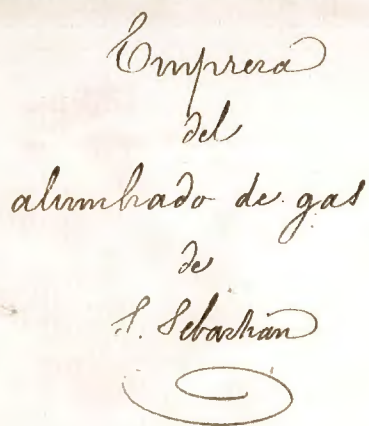 Empresa
del
alumbrado de gas
de
S. Sebastián